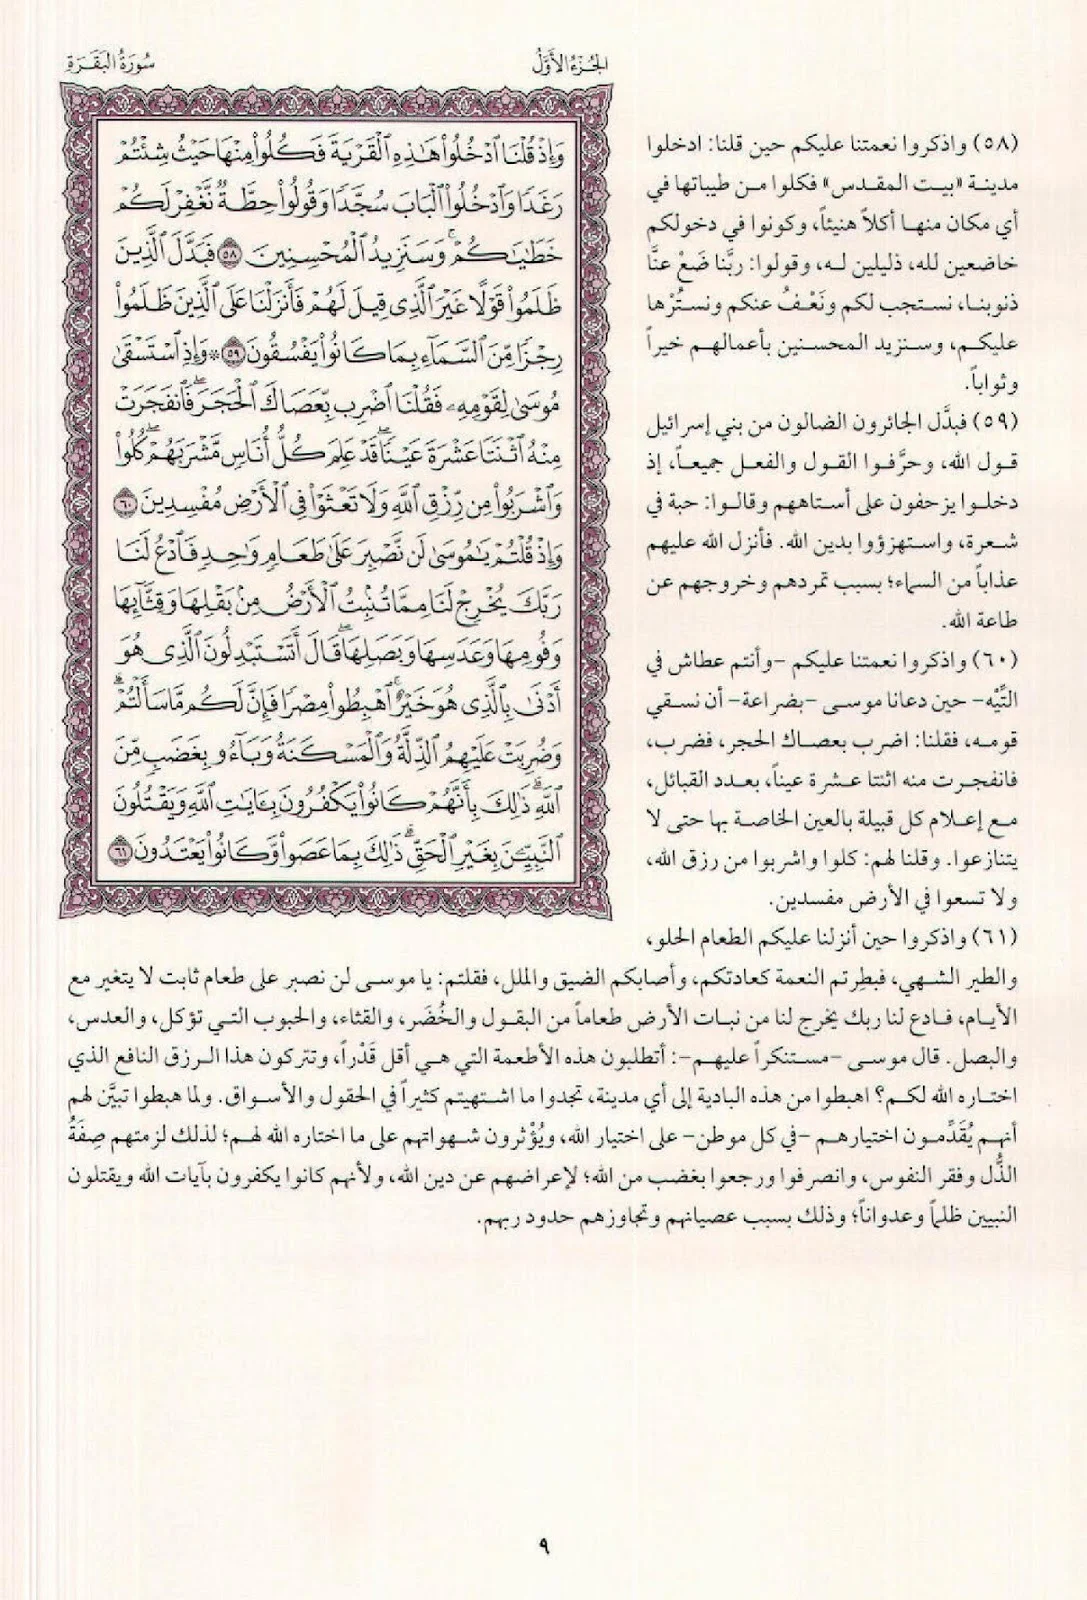 الجُزْءُ الأَوَّلُ
سُورَةُ البَقَرَةِ
وَإِذْ قُلْنَا ٱدْخُلُوا۟ هَٰذِهِ ٱلْقَرْيَةَ فَكُلُوا۟ مِنْهَا حَيْثُ شِئْتُمْ
رَغَدًا وَٱدْخُلُوا۟ ٱلْبَابَ سُجَّدًا وَقُولُوا۟ حِطَّةٌ نَّغْفِرْ لَكُمْ
خَطَٰيَٰكُمْ ۚ وَسَنَزِيدُ ٱلْمُحْسِنِينَ ٥٨ فَبَدَّلَ ٱلَّذِينَ
ظَلَمُوا۟ قَوْلًا غَيْرَ ٱلَّذِى قِيلَ لَهُمْ فَأَنزَلْنَا عَلَى ٱلَّذِينَ ظَلَمُوا۟
رِجْزًا مِّنَ ٱلسَّمَآءِ بِمَا كَانُوا۟ يَفْسُقُونَ ٥٩ * وَإِذِ ٱسْتَسْقَىٰ
مُوسَىٰ لِقَوْمِهِۦ فَقُلْنَا ٱضْرِب بِّعَصَاكَ ٱلْحَجَرَ ۖ فَٱنفَجَرَتْ
مِنْهُ ٱثْنَتَا عَشْرَةَ عَيْنًا ۖ قَدْ عَلِمَ كُلُّ أُنَاسٍ مَّشْرَبَهُمْ ۖ كُلُوا۟
وَٱشْرَبُوا۟ مِن رِّزْقِ ٱللَّهِ وَلَا تَعْثَوْا۟ فِى ٱلْأَرْضِ مُفْسِدِينَ ٦٠
وَإِذْ قُلْتُمْ يَٰمُوسَىٰ لَن نَّصْبِرَ عَلَىٰ طَعَامٍ وَٰحِدٍ فَٱدْعُ لَنَا
رَبَّكَ يُخْرِجْ لَنَا مِمَّا تُنۢبِتُ ٱلْأَرْضُ مِنۢ بَقْلِهَا وَقِثَّآئِهَا
وَفُومِهَا وَعَدَسِهَا وَبَصَلِهَا ۖ قَالَ أَتَسْتَبْدِلُونَ ٱلَّذِى هُوَ
أَدْنَىٰ بِٱلَّذِى هُوَ خَيْرٌ ۚ ٱهْبِطُوا۟ مِصْرًا فَإِنَّ لَكُم مَّا سَأَلْتُمْ ۗ
وَضُرِبَتْ عَلَيْهِمُ ٱلذِّلَّةُ وَٱلْمَسْكَنَةُ وَبَآءُو بِغَضَبٍ مِّنَ
ٱللَّهِ ۗ ذَٰلِكَ بِأَنَّهُمْ كَانُوا۟ يَكْفُرُونَ بِـَٔايَٰتِ ٱللَّهِ وَيَقْتُلُونَ
ٱلنَّبِيِّـۧنَ بِغَيْرِ ٱلْحَقِّ ۗ ذَٰلِكَ بِمَا عَصَوا۟ وَّكَانُوا۟ يَعْتَدُونَ ٦١
(٥٨) واذكروا نعمتنا عليكم حين قلنا: ادخلوا
مدينة «بيت المقدس» فكلوا من طيباتها في
أي مكان منها أكلاً هنيئاً، وكونوا في دخولكم
خاضعين لله، ذليلين له، وقولوا: ربَّنا ضَعْ عنَّا
ذنوبنا، نستجب لكم ونَعْفُ عنكم ونستُرْها
عليكم، وسنزيد المحسنين بأعمالهم خيراً
وثواباً.
(٥٩) فبدَّل الجائرون الضالون من بني إسرائيل
قول الله، وحرَّفوا القول والفعل جميعاً، إذ
دخلوا يزحفون على أستاههم وقالوا: حبة في
شعرة، واستهزؤوا بدين الله. فأنزل الله عليهم
عذاباً من السماء؛ بسبب تمردهم وخروجهم عن
طاعة الله.
(٦٠) واذكروا نعمتنا عليكم -وأنتم عطاش في
التِّيْه- حين دعانا موسى -بضراعة- أن نسقي
قومه، فقلنا: اضرب بعصاك الحجر، فضرب،
فانفجرت منه اثنتا عشرة عيناً، بعدد القبائل،
مع إعلام كل قبيلة بالعين الخاصة بها حتى لا
يتنازعوا. وقلنا لهم: كلوا واشربوا من رزق الله،
ولا تسعوا في الأرض مفسدين.
(٦١) واذكروا حين أنزلنا عليكم الطعام الحلو،
والطير الشهي، فبطِرتم النعمة كعادتكم، وأصابكم الضيق والملل، فقلتم: يا موسى لن نصبر على طعام ثابت لا يتغير مع
الأيام، فادع لنا ربك يخرج لنا من نبات الأرض طعاماً من البقول والخُضَر، والقثاء، والحبوب التي تؤكل، والعدس،
والبصل. قال موسى -مستنكراً عليهم-: أتطلبون هذه الأطعمة التي هي أقل قَدْراً، وتتركون هذا الرزق النافع الذي
اختاره الله لكم؟ اهبطوا من هذه البادية إلى أي مدينة، تجدوا ما اشتهيتم كثيراً في الحقول والأسواق. ولما هبطوا تبيَّن لهم
أنهم يُقَدِّمون اختيارهم -في كل موطن- على اختيار الله، ويُؤْثرون شهواتهم على ما اختاره الله لهم؛ لذلك لزمتهم صِفَةُ
الذُّل وفقر النفوس، وانصرفوا ورجعوا بغضب من الله؛ لإعراضهم عن دين الله، ولأنهم كانوا يكفرون بآيات الله ويقتلون
النبيين ظلماً وعدواناً؛ وذلك بسبب عصيانهم وتجاوزهم حدود ربهم.
٩